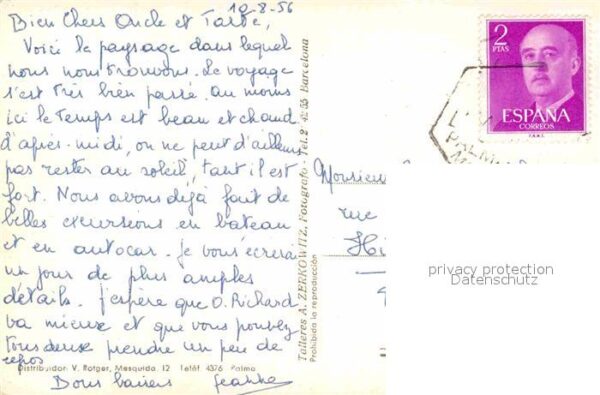 10-8-56
Bien Chers Oncle et Tante,
Voici le paysage dans lequel
nous nous trouvons. Le voyage
s'est très bien passé. au moins
ici le temps est beau et chaud
d'après-midi, on ne peut d'ailleurs
pas rester au soleil, tant il est
fort. Nous avons déjà fait de
belles excursions en bateau
et en autocar. Je vous écrirai
un jour de plus amples
détails. J'espère que O. Richard
va mieux et que vous pouvez
tous deux prendre un peu de
repos
Bons baisers
Distribuidor: V. Rotger, Mesquida, 12 Teléf. 4376 Palma
Talleres A. ZERKOWITZ, Fotógrafo - Tel. 2 Barcelona
Prohibida la reproducción
2
PTAS
ESPAÑA
CORREOS
PALM
Monsieur
rue
privacy protection
Datenschutz